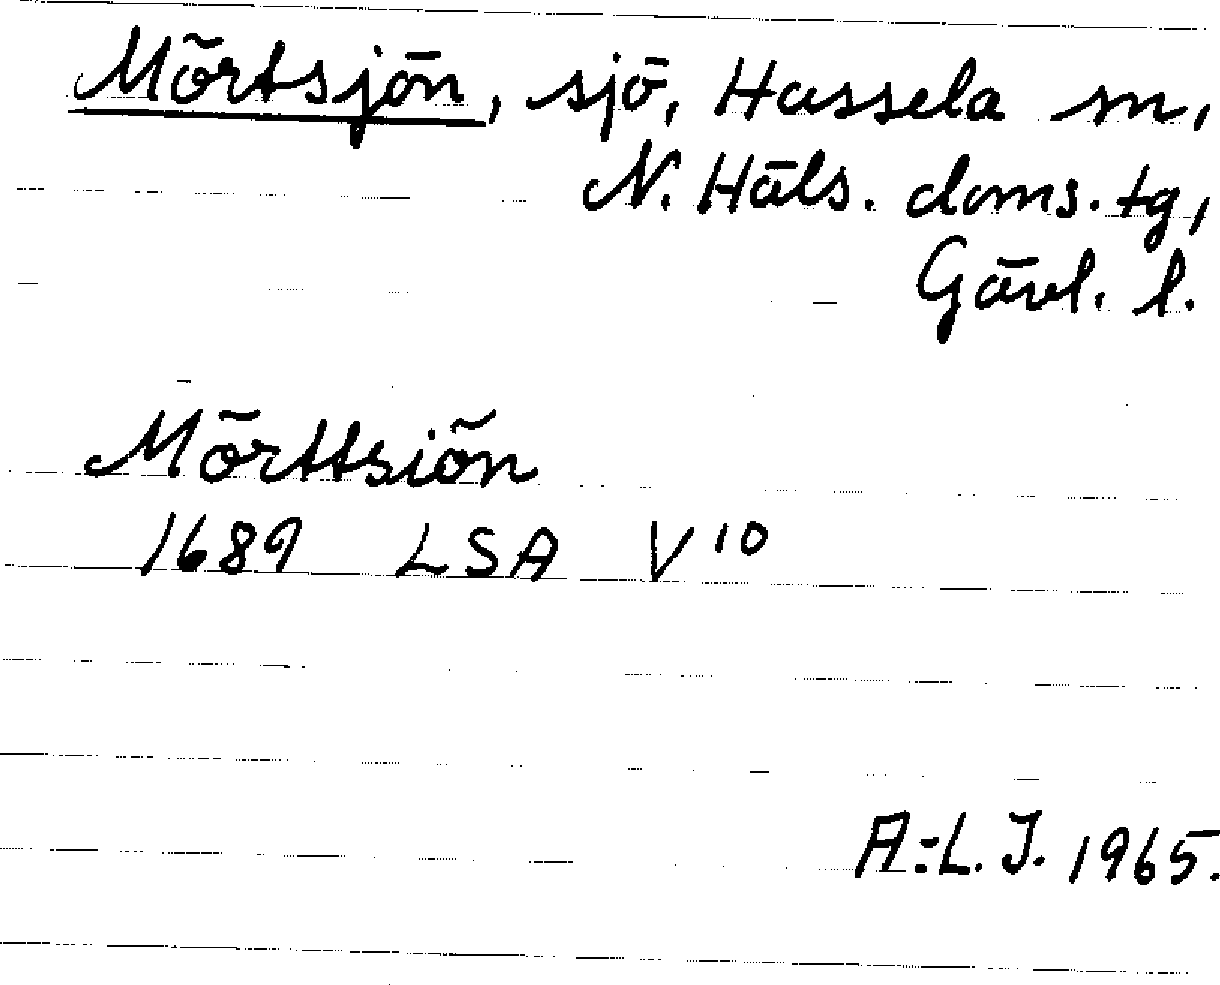 Mörtsjön, sjö, Hassela sn,
N. Häls. doms. tg,
Gävl. l.
Mörttsiön
1689 LSA V 10
A.-L. J. 1965.